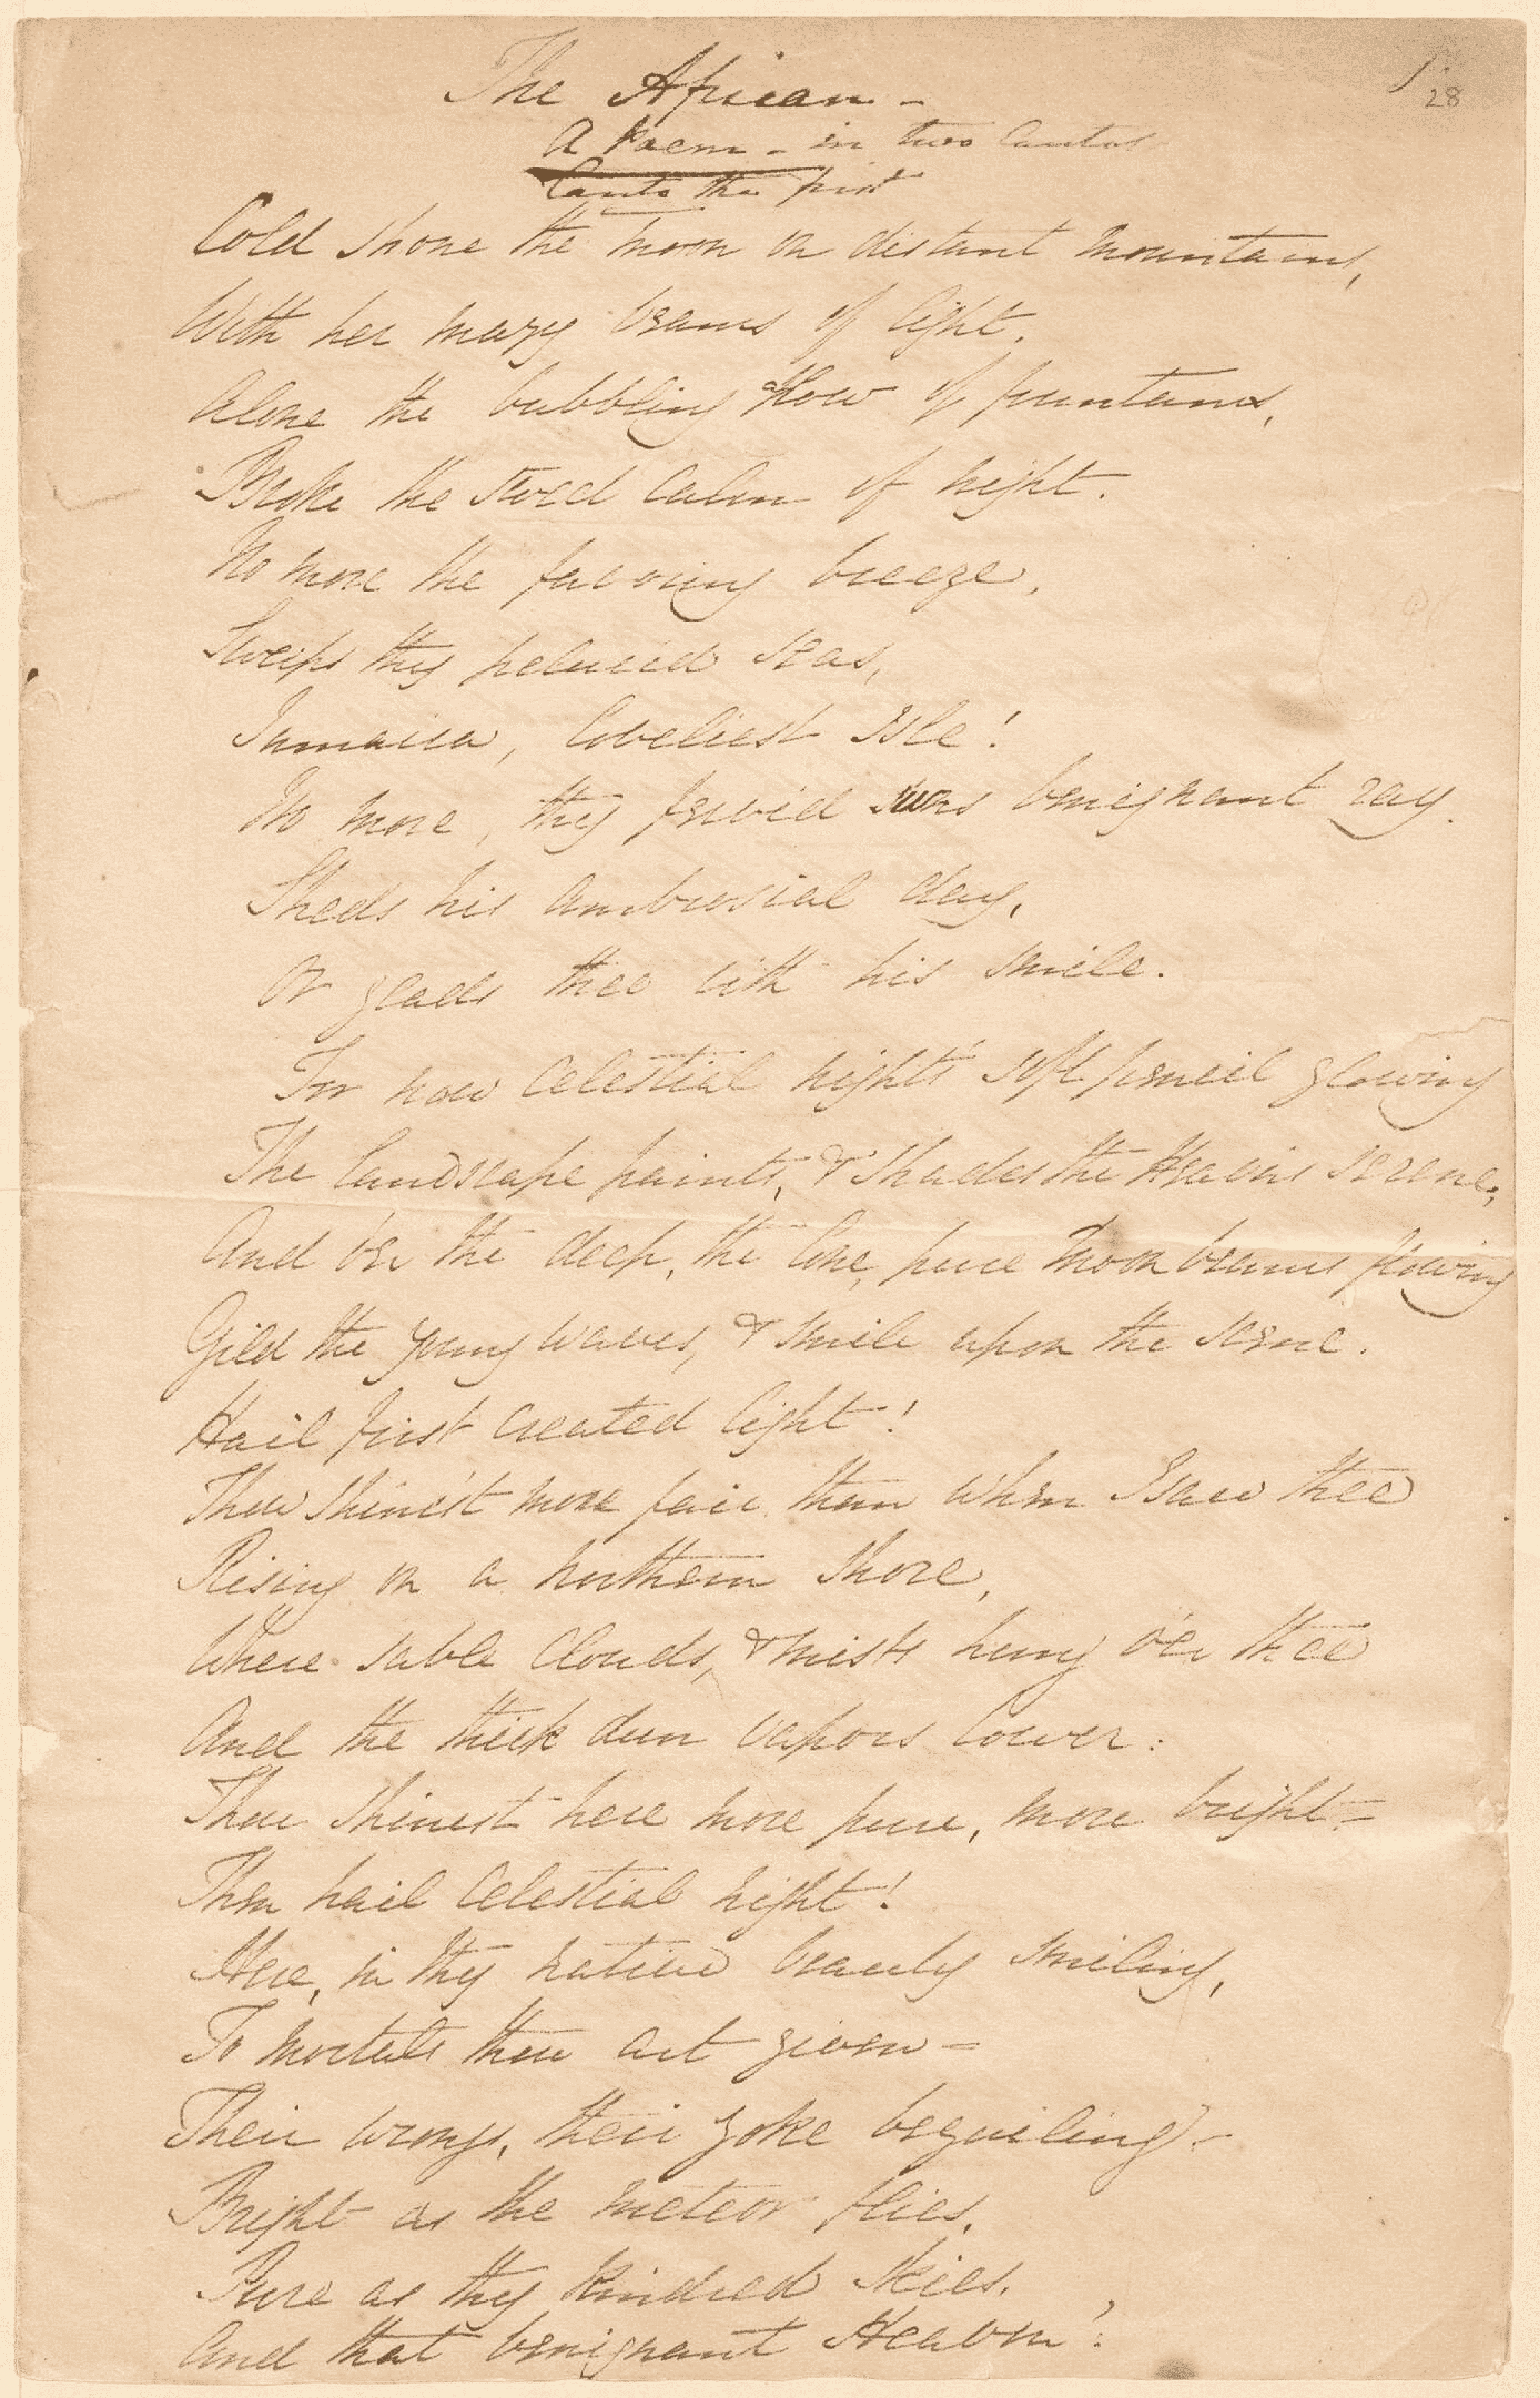 1.
28
The African -
A Poem - in two Cantos
Canto the first
Cold shone the moon on distant mountains,
With her mazy beams of light.
Alone the bubbling flow of fountains,
Broke the still calm of night.
No more the favoring breeze,
Sweeps thy pelucid seas,
Jamaica, loveliest Isle!
No more, thy fervid suns benignant ray
Sheds his ambrosial day,
Or glads thee with his smile.
For now celestial night's soft pencil glowing
The landscape paints, & shades the Heavens serene;
And o'er the deep, the lone, pure moon beams flowing
Gild the young waves, & smile upon the scene.
Hail first created light!
Thou shine'st more fair, than when I saw thee
Rising on a northern shore,
Where sable clouds, & mists hung o'er thee
And the thick dun vapors lower:
Thou shinest here more pure, more bright -
Then hail celestial night!
Here, in thy native beauty smiling,
To mortals thou art given -
Their wrongs, their yoke beguiling -
Bright as the meteor flies,
Pure as thy kindred skies,
And that benignant Heaven!